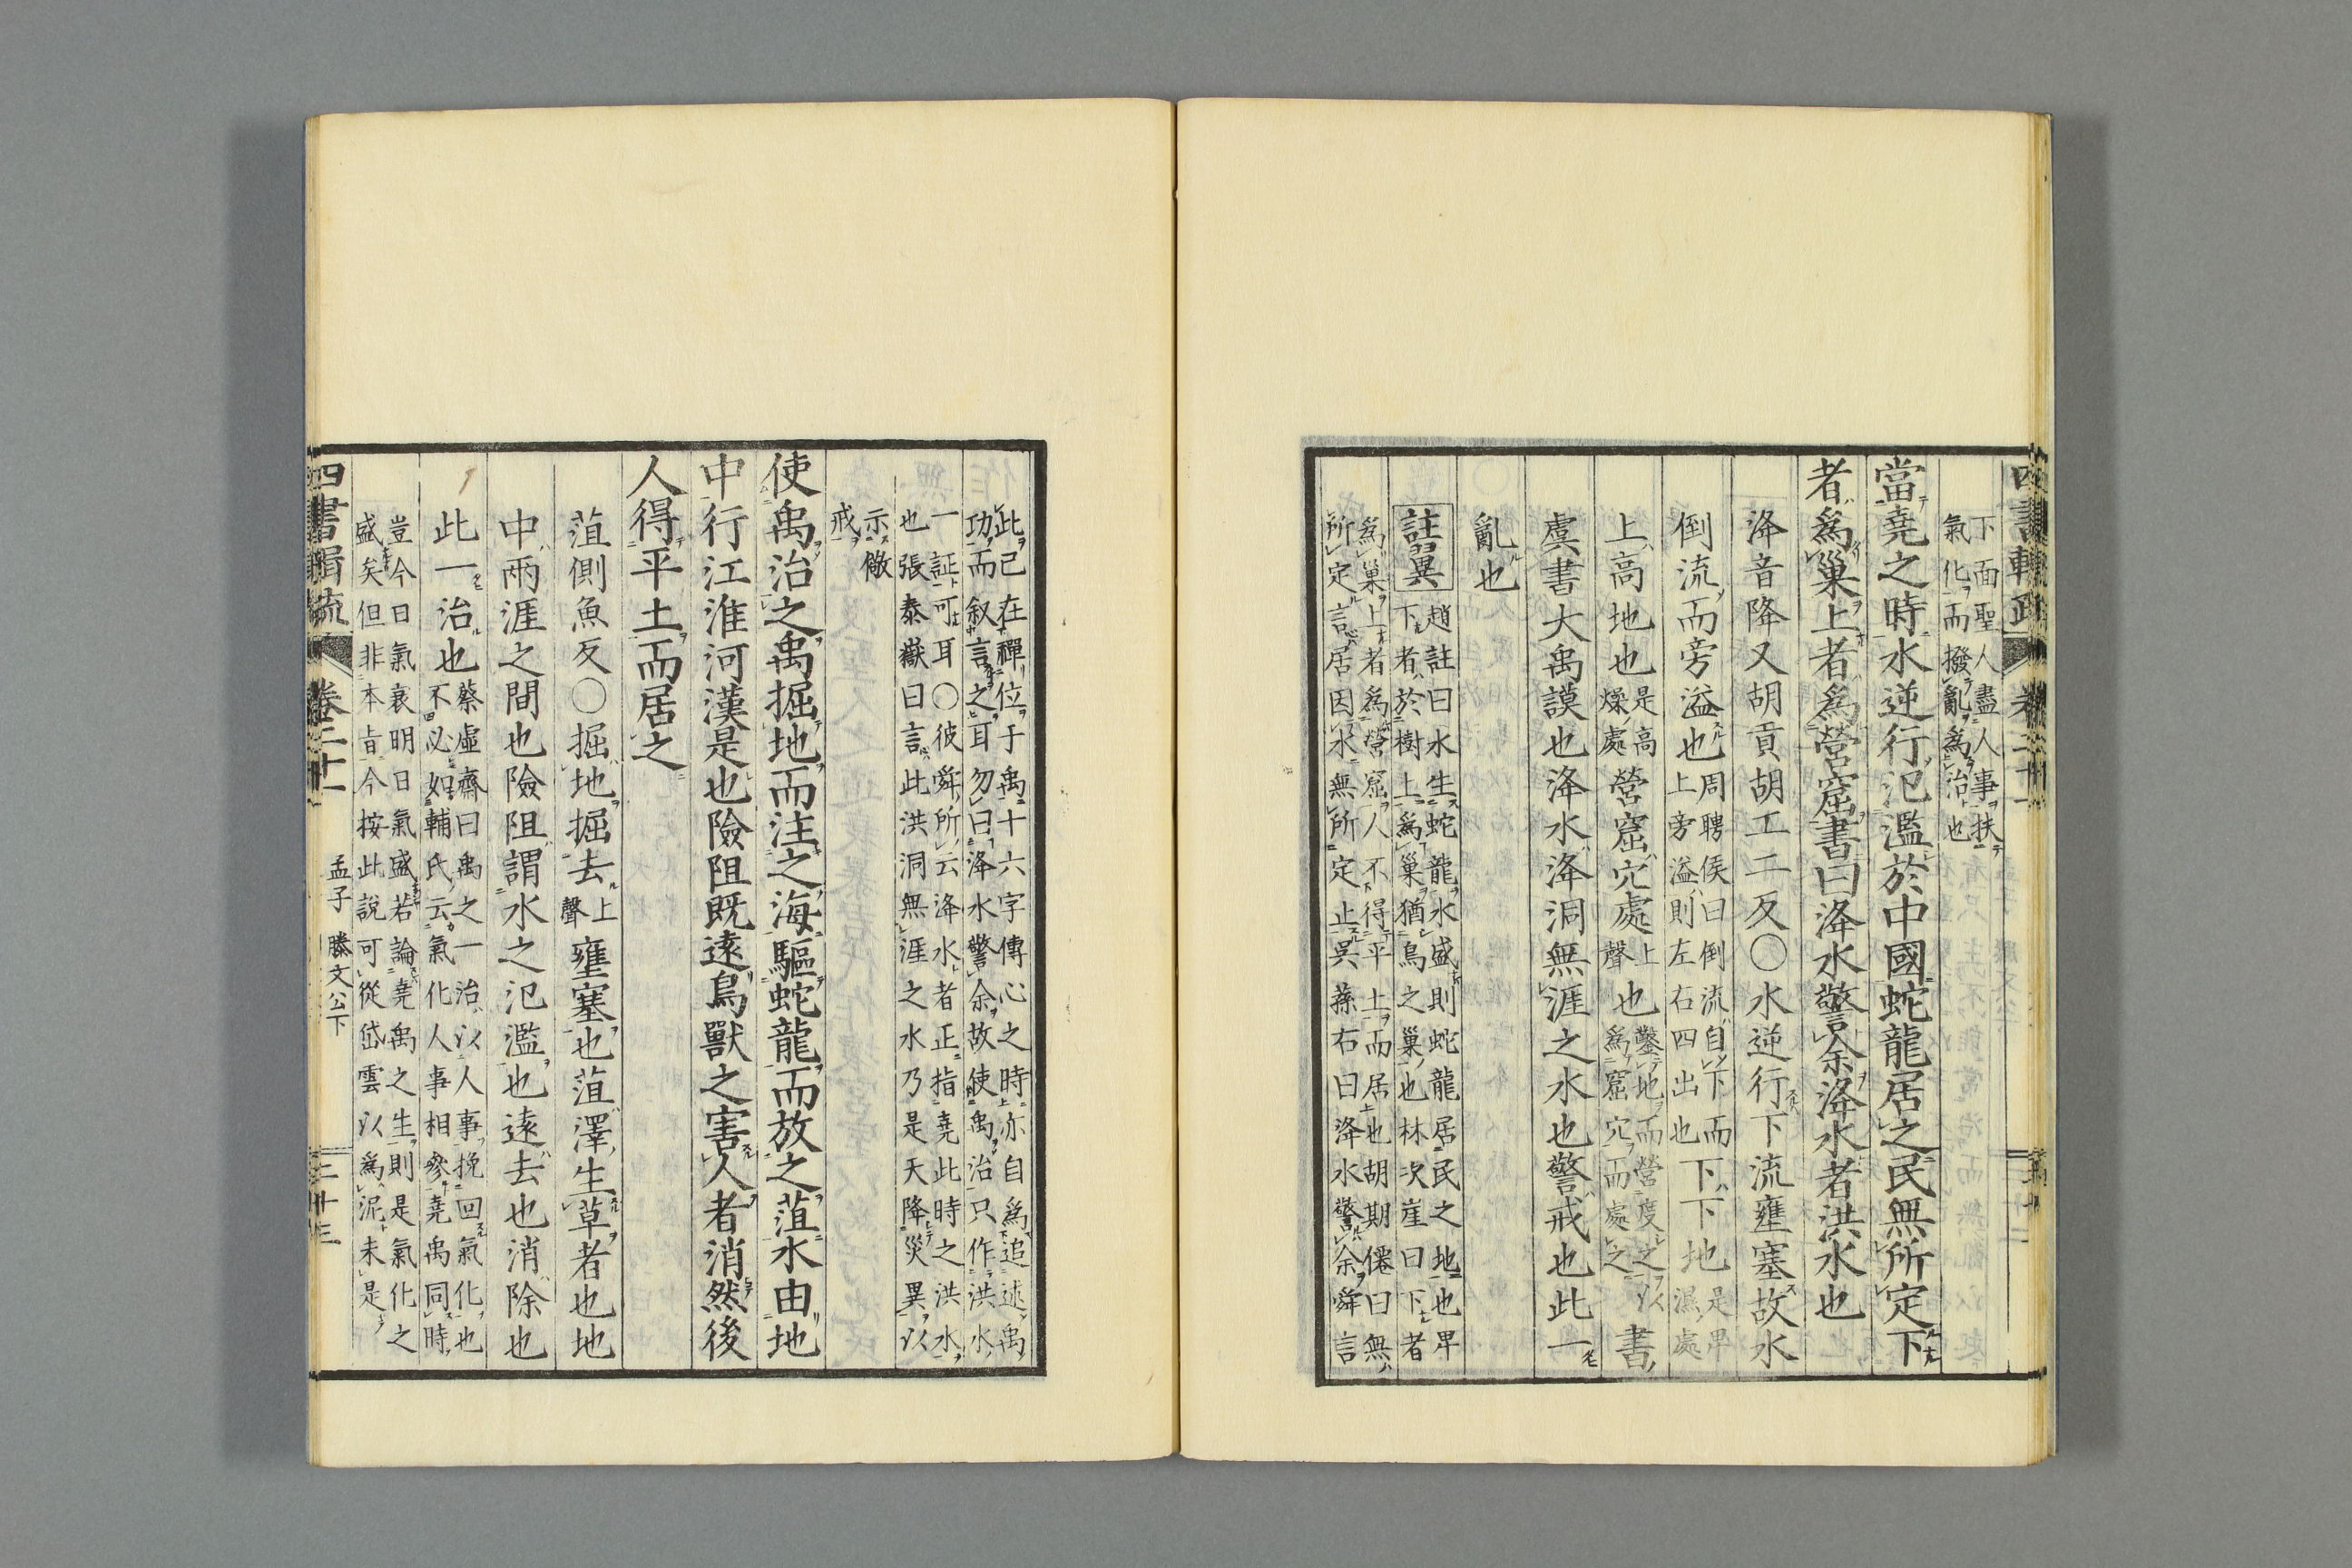 下面聖人盡人事扶
氣化而撥亂爲治也
當堯之時水逆行氾濫於中國蛇龍居之民無所定下
者爲巢上者爲營窟書曰洚水警余洚水者洪水也
洚音降又胡貢胡工二反〇水逆行下流壅塞故水
倒流而旁溢也周聘侯曰倒流自下而上旁溢則左右四出也下下地是卑濕處
上高地也是高燥處營窟穴處上聲也鑿地而營度之以爲窟穴而處之書
虞書大禹謨也洚水洚洞無涯之水也警戒也此一
亂也
註翼趙註曰水生蛇龍水盛則蛇龍居民之地也卑
下者於樹上爲巢猶鳥之巢也林次崖曰下者
爲巢上者爲營窟人不得平土而居也胡期僊曰無
所定言居因水無所定止吳蓀右曰洚水警余舜言
此己在禪位于禹十六字傳心之時亦自爲追述禹
功而叙言之耳勿曰洚水警余故使禹治只作洪水
一証可耳〇彼舜所云洚水者正指堯此時之洪水
也張泰嶽曰言此洪洞無涯之水乃是天降災異以
示儆
戒
使禹治之禹掘地而注之海驅蛇龍而放之菹水由地
中行江淮河漢是也險阻既遠鳥獸之害人者消然後
人得平土而居之
菹側魚反〇掘地掘去上聲壅塞也菹澤生草者也地
中兩涯之間也險阻謂水之氾濫也遠去也消除也
此一治也蔡虛齋曰禹之一治以人事挽回氣化也
不必如輔氏云氣化人事相參堯禹同時
豈今日氣衰明日氣盛若論堯禹之生則是氣化之
盛矣但非本旨今按此說可從岱雲以爲泥未是
四書輯疏 卷二十一 孟子 滕文公下 二十三